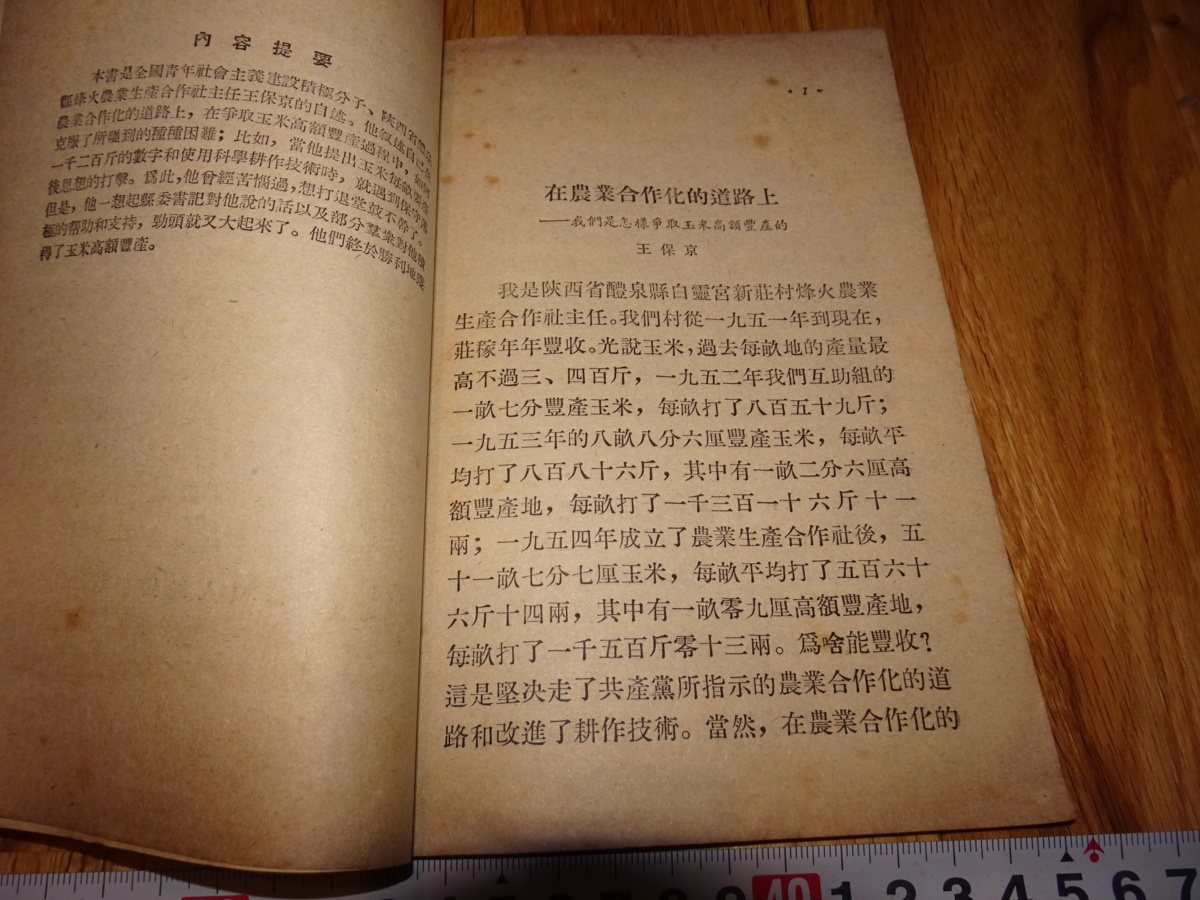 內容提要
本書是全國青年社會主義建設積極分子、陝西省醴泉
縣烽火農業生產合作社主任王保京的自述。他叙述自己在
農業合作化的道路上，在爭取玉米高額豐產過程中，如何
克服了所碰到的種種困難；比如，當他提出玉米每畝要產
一千二百斤的數字和使用科學耕作技術時，就遇到保守落
後思想的打擊。爲此，他曾經苦惱過，想打退堂鼓不幹了。
但是，他一想起縣委書記對他說的話以及部分羣衆對他積
極的幫助和支持，勁頭就又大起來了。他們終於勝利地獲
得了玉米高額豐產。
· 1 ·
在農業合作化的道路上
——我們是怎樣爭取玉米高額豐產的
王保京
我是陝西省醴泉縣白靈宮新莊村烽火農業
生產合作社主任。我們村從一九五一年到現在，
莊稼年年豐收。光說玉米，過去每畝地的產量最
高不過三、四百斤，一九五二年我們互助組的
一畝七分豐產玉米，每畝打了八百五十九斤；
一九五三年的八畝八分六厘豐產玉米，每畝平
均打了八百八十六斤，其中有一畝二分六厘高
額豐產地，每畝打了一千三百一十六斤十一
兩；一九五四年成立了農業生產合作社後，五
十一畝七分七厘玉米，每畝平均打了五百六十
六斤十四兩，其中有一畝零九厘高額豐產地，
每畝打了一千五百斤零十三兩。爲啥能豐收？
這是堅決走了共產黨所指示的農業合作化的道
路和改進了耕作技術。當然，在農業合作化的
40 1 2 3 4 5 6 7